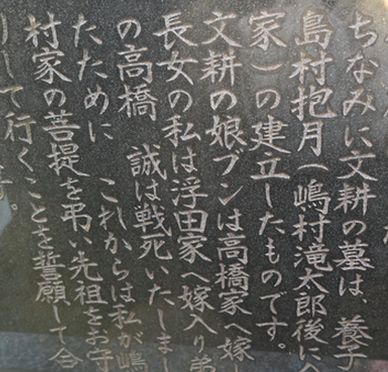 ちなみに文耕の墓は、養子
島村抱月(嶋村滝太郎後に
家)の建立したものです。
文耕の娘ブンは高橋家へ嫁
長女の私は浮田家へ嫁入り弟
の高橋 誠は戦死いたしまし
たために これからは私が嶋
村家の菩提を弔い先祖をお守
りして行くことを誓願して合
す。